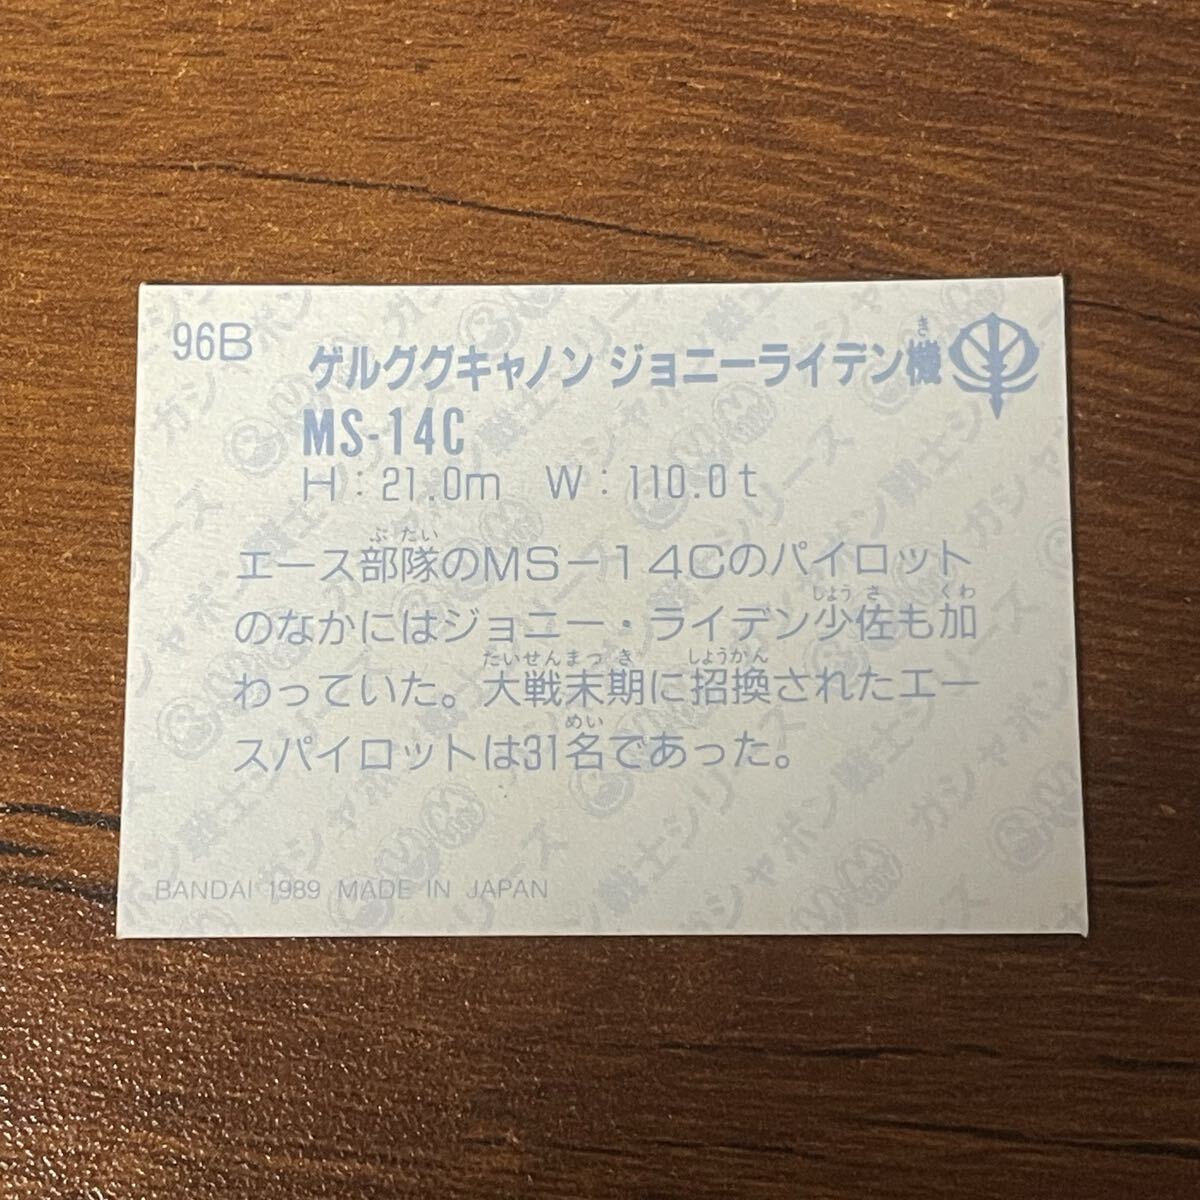 96B
ゲルググキャノン ジョニーライデン機
き
MS-14C
H：21.0m　W：110.0t
ぶ たい
エース部隊のMS−14Cのパイロット
しょう さ　くわ
のなかにはジョニー・ライデン少佐も加
たいせんまっ き　しょうかん
わっていた。大戦末期に招換されたエー
めい
スパイロットは31名であった。
BANDAI 1989 MADE IN JAPAN
ガシャポン戦士シリーズ